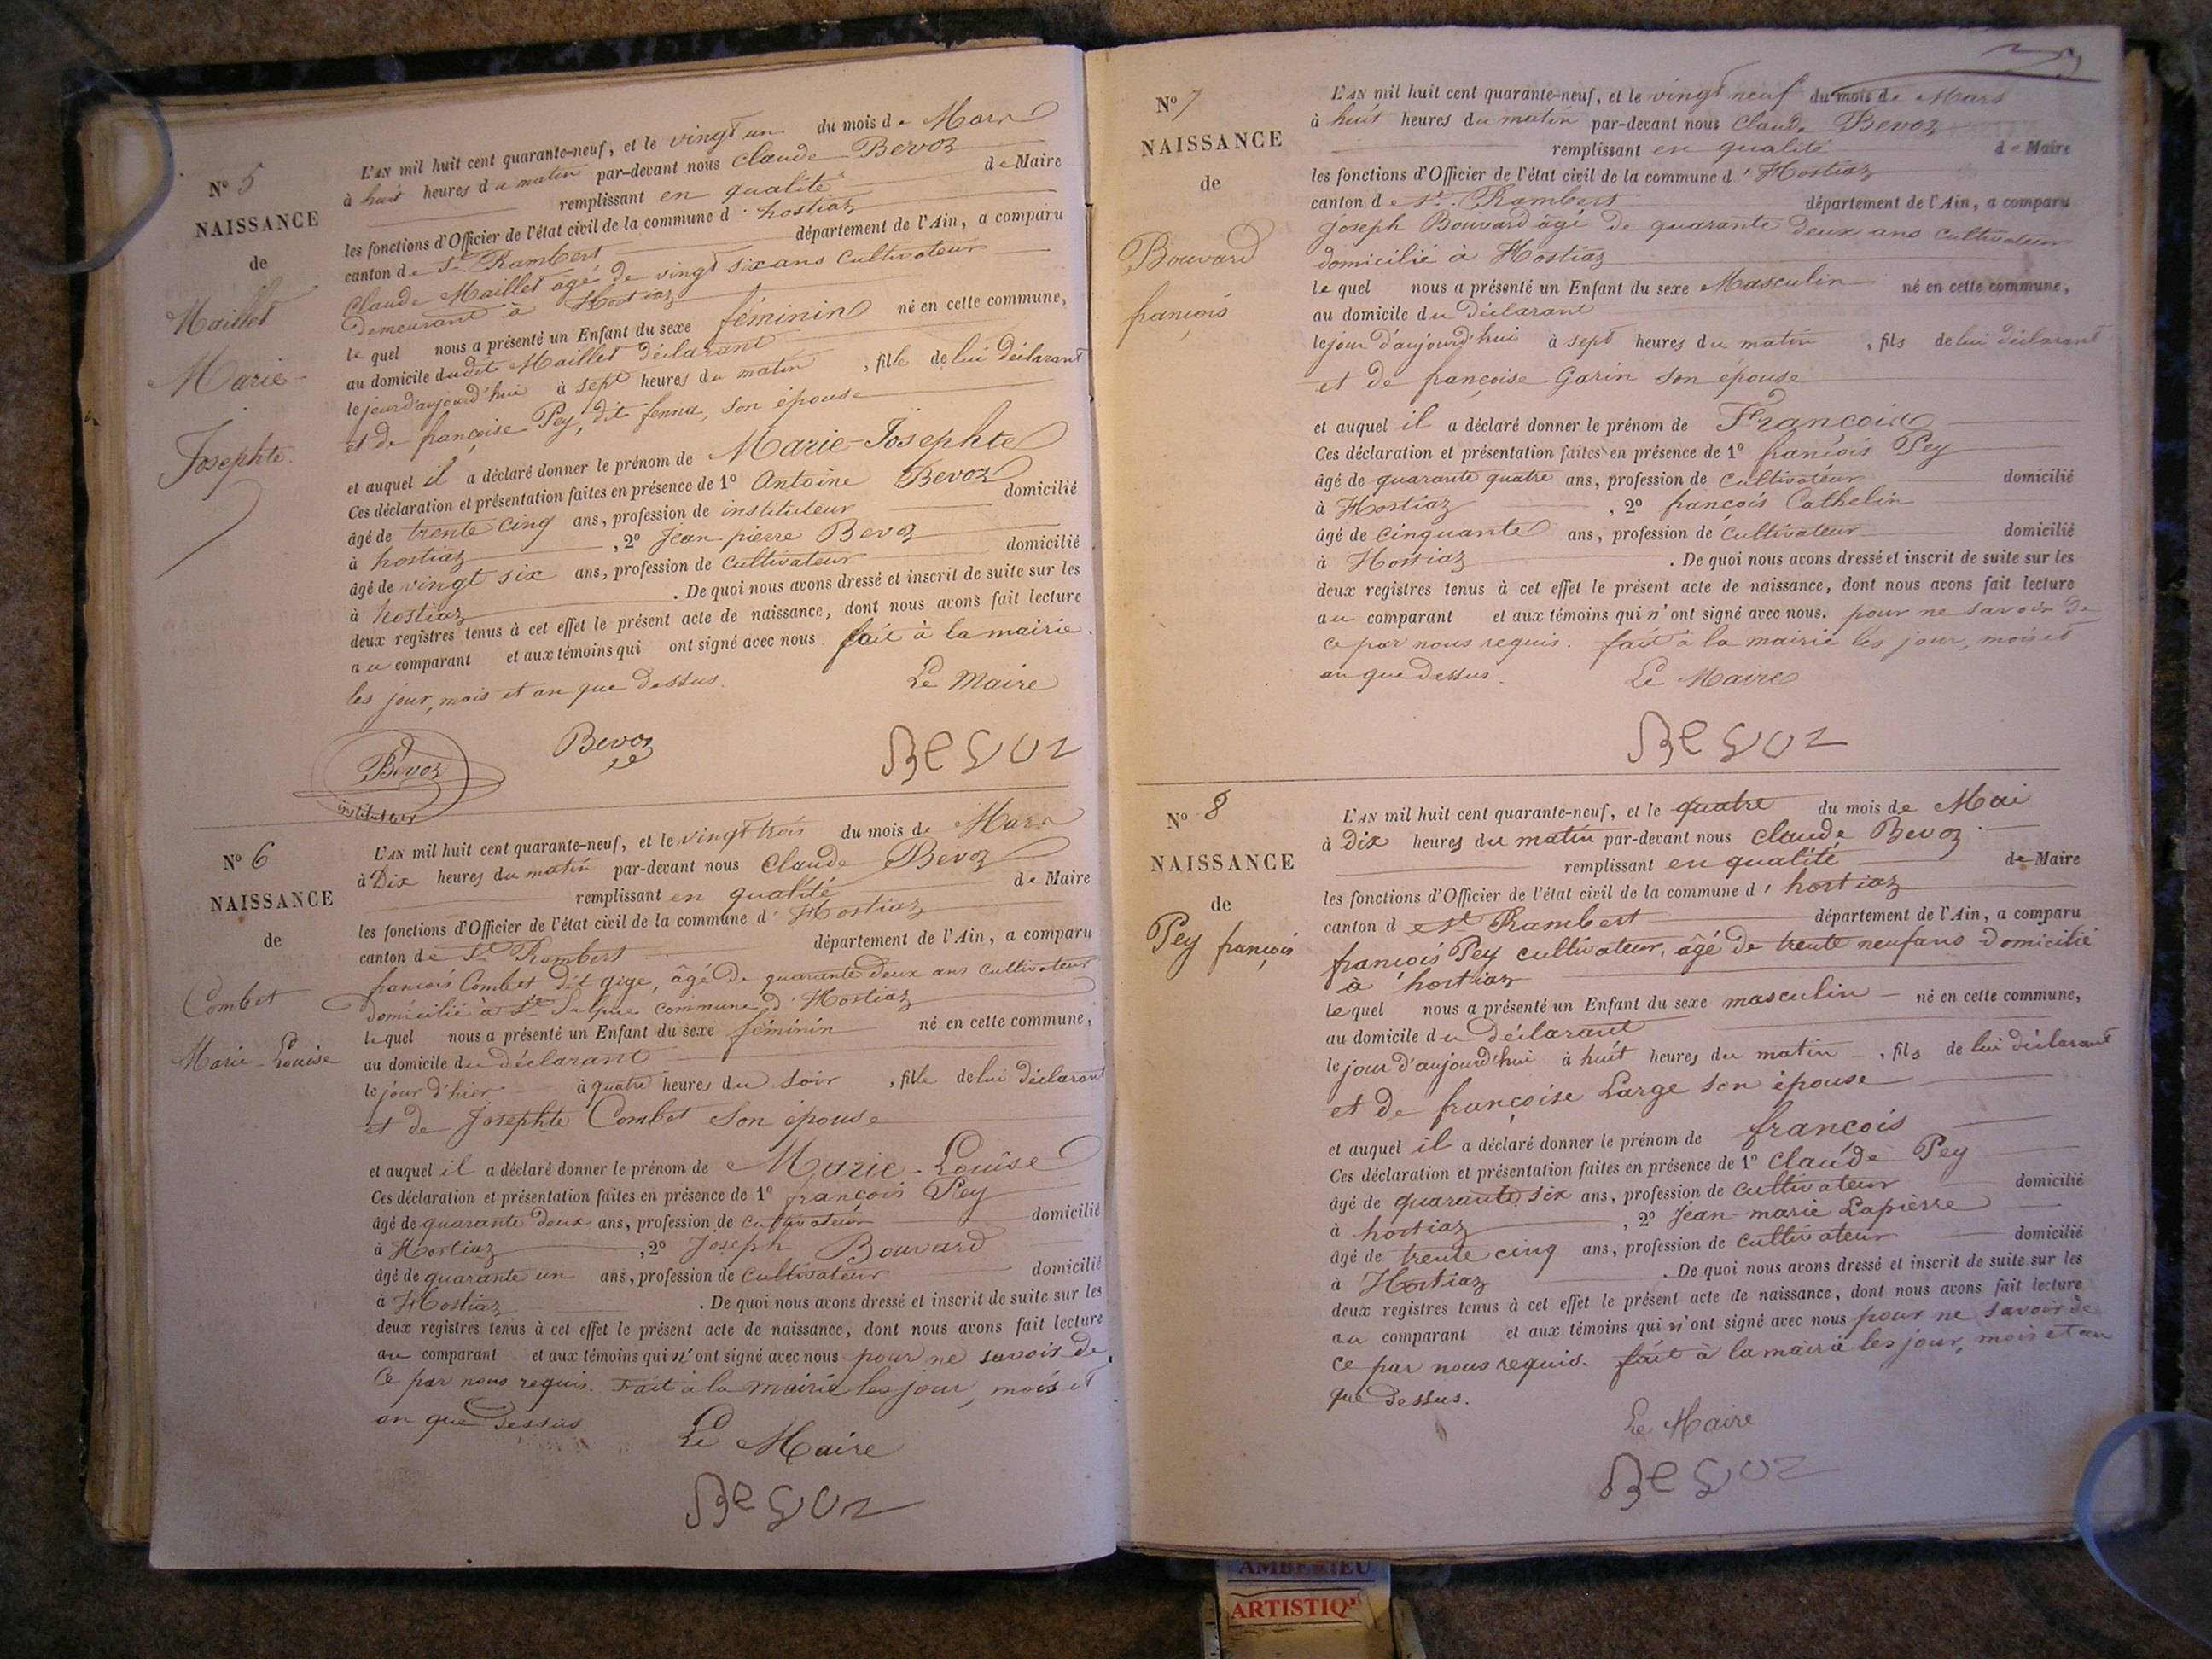 Nº 5
NAISSANCE
de
Maillet
Marie-
Josephte.
L'AN mil huit cent quarante-neuf, et le vingt un du mois de Mars
à huit heures du matin par-devant nous Claude Bevoz
remplissant en qualité de Maire
les fonctions d'Officier de l'état civil de la commune d'hostiaz
canton de St Rambert département de l'Ain, a comparu
Claude Maillet âgé de vingt six ans Cultivateur
demeurant à Hostiaz
lequel nous a présenté un Enfant du sexe féminin né en cette commune,
au domicile dudit Maillet déclarant
le jour d'aujourd'hui à sept heures du matin, fille de lui déclarant
et de françoise Pey, dit fenna, son épouse
et auquel il a déclaré donner le prénom de Marie-Josephte
Ces déclaration et présentation faites en présence de 1º Antoine Bevoz
âgé de trente cinq ans, profession de instituteur domicilié
à hostiaz, 2º Jean pierre Bevoz
âgé de vingt six ans, profession de Cultivateur domicilié
à hostiaz. De quoi nous avons dressé et inscrit de suite sur les
deux registres tenus à cet effet le présent acte de naissance, dont nous avons fait lecture
au comparant et aux témoins qui ont signé avec nous fait à la mairie
les jour, mois et an que dessus.
Le Maire
Bevoz
instituteur
Bevoz
Bevoz
Nº 6
NAISSANCE
de
Combet
Marie-Louise
L'AN mil huit cent quarante-neuf, et le vingt trois du mois de Mars
à Dix heures du matin par-devant nous Claude Bevoz
remplissant en qualité de Maire
les fonctions d'Officier de l'état civil de la commune d'Hostiaz
canton de St Rambert département de l'Ain, a comparu
francois Combet dit gige, âgé de quarante deux ans cultivateur
domicilié à St Sulpice commune d'Hostiaz
lequel nous a présenté un Enfant du sexe féminin né en cette commune,
au domicile du déclarant
le jour d'hier à quatre heures du soir, fille de lui déclarant
et de Josephte Combet son épouse
et auquel il a déclaré donner le prénom de Marie-Louise
Ces déclaration et présentation faites en présence de 1º françois Pey
âgé de quarante deux ans, profession de cultivateur domicilié
à Hostiaz, 2º Joseph Bouvard
âgé de quarante un ans, profession de cultivateur domicilié
à Hostiaz. De quoi nous avons dressé et inscrit de suite sur les
deux registres tenus à cet effet le présent acte de naissance, dont nous avons fait lecture
au comparant et aux témoins qui n'ont signé avec nous pour ne savoir de
ce par nous requis. Fait à la mairie les jour, mois et
an que dessus
Le Maire
Bevoz
Nº 7
NAISSANCE
de
Bouvard
françois
L'AN mil huit cent quarante-neuf, et le vingt neuf du mois de Mars
à huit heures du matin par-devant nous Claude Bevoz
remplissant en qualité de Maire
les fonctions d'Officier de l'état civil de la commune d'Hostiaz
canton de St. Rambert département de l'Ain, a comparu
Joseph Bouvard âgé de quarante deux ans cultivateur
domicilié à Hostiaz
lequel nous a présenté un Enfant du sexe Masculin né en cette commune,
au domicile du déclarant
le jour d'aujourd'hui à sept heures du matin, fils de lui déclarant
et de françoise Garin son épouse
et auquel il a déclaré donner le prénom de François
Ces déclaration et présentation faites en présence de 1º françois Pey
âgé de quarante quatre ans, profession de cultivateur domicilié
à Hostiaz, 2º françois Cathelin
âgé de cinquante ans, profession de cultivateur domicilié
à Hostiaz. De quoi nous avons dressé et inscrit de suite sur les
deux registres tenus à cet effet le présent acte de naissance, dont nous avons fait lecture
au comparant et aux témoins qui n'ont signé avec nous. pour ne savoir de
ce par nous requis. fait à la mairie les jour, mois et
an que dessus.
Le Maire
Bevoz
Nº 8
NAISSANCE
de
Pey françois
L'AN mil huit cent quarante-neuf, et le quatre du mois de Mai
à Dix heures du matin par-devant nous Claude Bevoz
remplissant en qualité de Maire
les fonctions d'Officier de l'état civil de la commune d'hostiaz
canton d St Rambert département de l'Ain, a comparu
françois Pey cultivateur, âgé de trente neuf ans domicilié
à hostiaz
lequel nous a présenté un Enfant du sexe masculin né en cette commune,
au domicile du déclarant
le jour d'aujourd'hui à huit heures du matin, fils de lui déclarant
et de françoise Large son épouse
et auquel il a déclaré donner le prénom de françois
Ces déclaration et présentation faites en présence de 1º Claude Pey
âgé de quarante six ans, profession de cultivateur domicilié
à hostiaz, 2º Jean-marie Lapierre
âgé de trente cinq ans, profession de cultivateur domicilié
à Hostiaz. De quoi nous avons dressé et inscrit de suite sur les
deux registres tenus à cet effet le présent acte de naissance, dont nous avons fait lecture
au comparant et aux témoins qui n'ont signé avec nous pour ne savoir de
ce par nous requis. fait à la mairie les jour, mois et an
que dessus.
Le Maire
Bevoz
AMBERIEU
ARTISTIQ